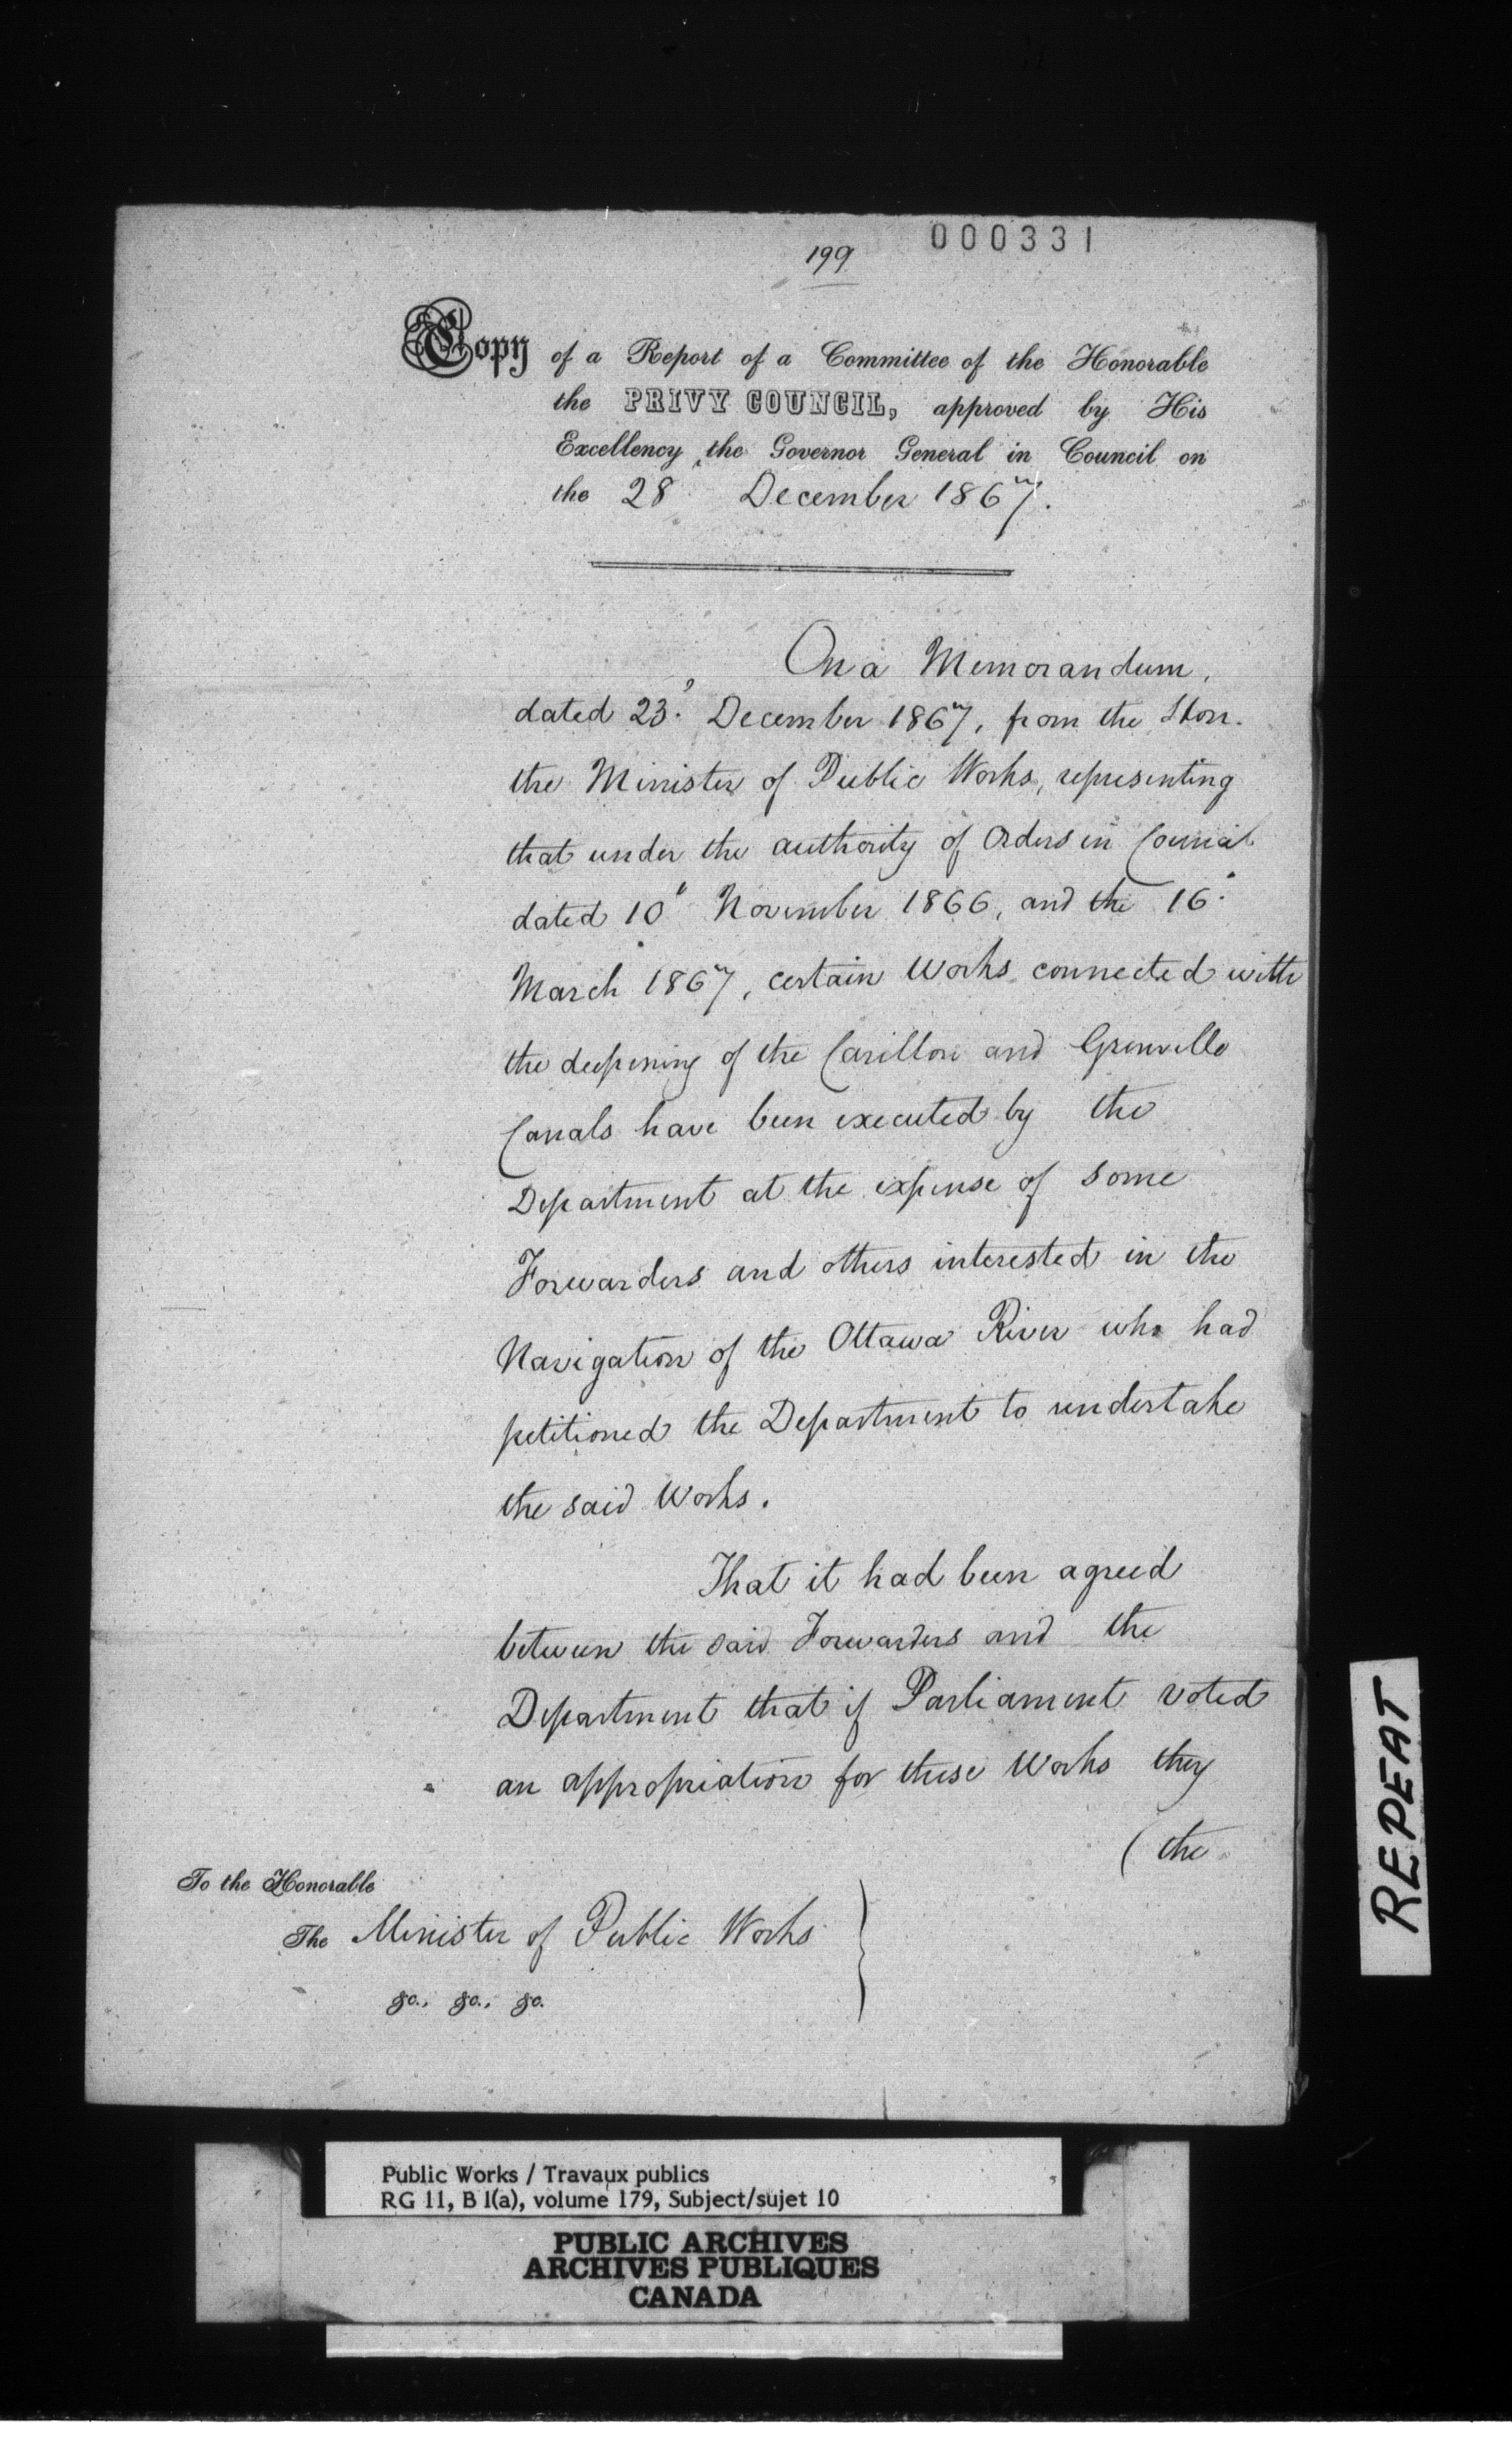 199
000331
Copy of a Report of a Committee of the Honorable
the PRIVY COUNCIL, approved by His
Excellency the Governor General in Council on
the 28 December 1867.
On a Memorandum,
dated 23d. December 1867, from the Hon.
the Minister of Public Works, representing
that under the authority of Orders in Council
dated 10" November 1866, and the 16"
March 1867, certain Works connected with
the deepening of the Carillon and Grenville
Canals have been executed by the
Department at the expense of some
Forwarders and others interested in the
Navigation of the Ottawa River who had
petitioned the Department to undertake
the said Works.
That it had been agreed
between the said Forwarders and the
Department that if Parliament voted
an appropriation for these Works they
(the
To the Honorable
The Minister of Public Works }
&c., &c., &c.
REPEAT
Public Works / Travaux publics
RG 11, B 1(a), volume 179, Subject/sujet 10
PUBLIC ARCHIVES
ARCHIVES PUBLIQUES
CANADA